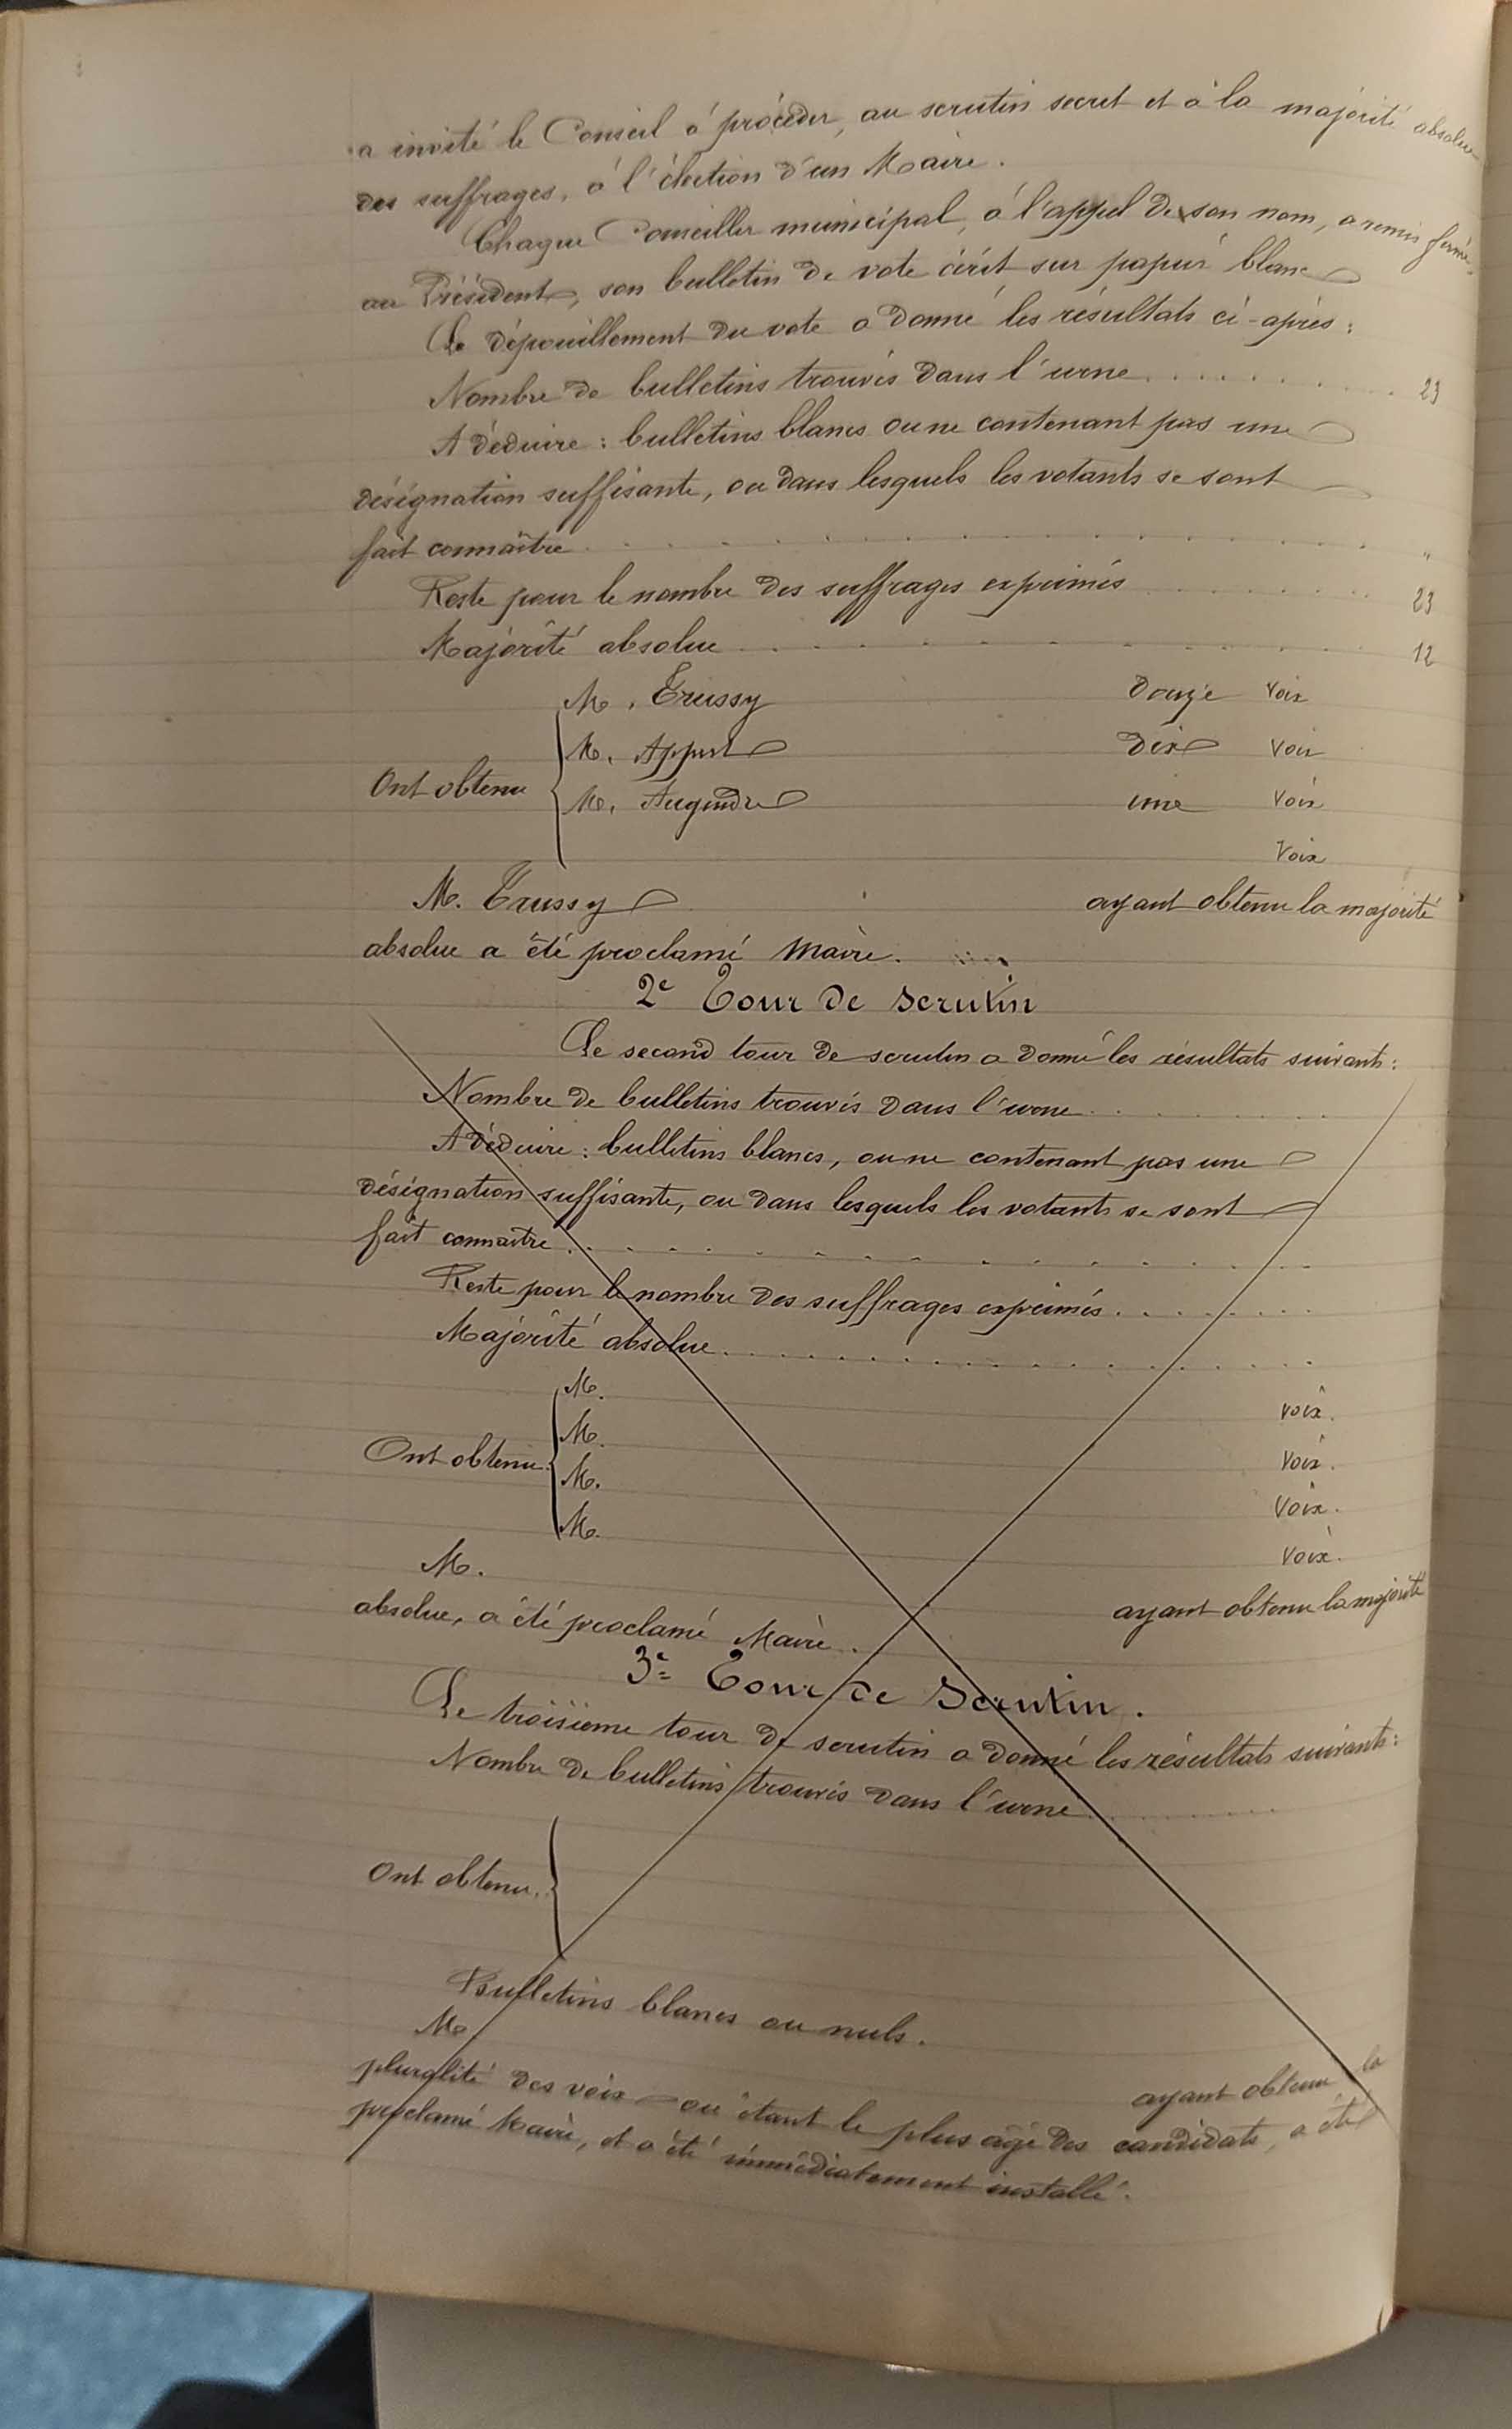 a invité le Conseil à procéder, au scrutin secret et à la majorité absolue
des suffrages, à l'élection d'un Maire.
Chaque Conseiller municipal, à l'appel de son nom, a remis fermé,
au Président, son bulletin de vote écrit sur papier blanc
Le dépouillement du vote a donné les résultats ci-après :
Nombre de bulletins trouvés dans l'urne . . . . . . . . . . 23
A déduire : bulletins blancs ou ne contenant pas une
désignation suffisante, ou dans lesquels les votants se sont
fait connaître . . . . . . . . . . . . . . . "
Reste pour le nombre des suffrages exprimés . . . . . . . . 23
Majorité absolue . . . . . . . . . . . . 12
M. Trussy douze voix
M. Appert dix voix
Ont obtenu
M. Augendre une voix
voix
M. Trussy ayant obtenu la majorité
absolue a été proclamé Maire.
2e Tour de Scrutin
Le second tour de scrutin a donné les résultats suivants :
Nombre de bulletins trouvés dans l'urne . . . . . . . .
A déduire : bulletins blancs, ou ne contenant pas une
désignation suffisante, ou dans lesquels les votants se sont
fait connaître . . . . . . . . . . . . . .
Reste pour le nombre des suffrages exprimés . . . . . . .
Majorité absolue . . . . . . . . . . . . . .
M. voix.
M. voix.
Ont obtenu
M. voix.
M. voix.
M. ayant obtenu la majorité
absolue, a été proclamé Maire.
3e Tour de Scrutin.
Le troisième tour de scrutin a donné les résultats suivants :
Nombre de bulletins trouvés dans l'urne . . . . . . .
Ont obtenu.
Bulletins blancs ou nuls.
M. ayant obtenu la
pluralité des voix ou étant le plus âgé des candidats, a été
proclamé Maire, et a été immédiatement installé.